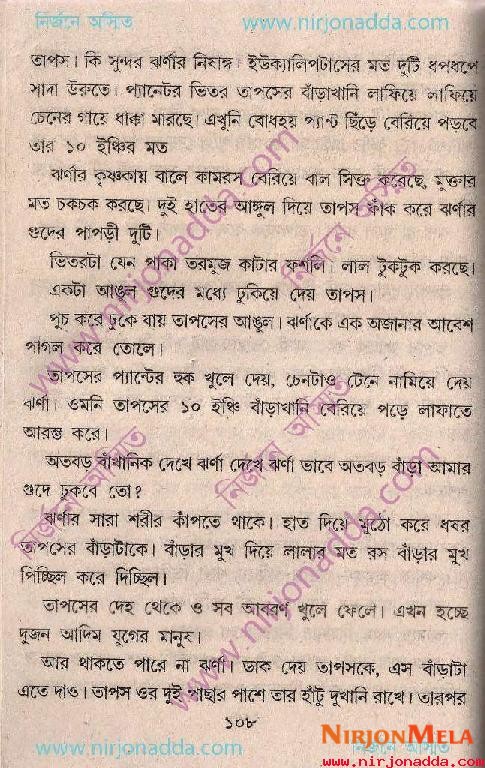 নির্জনে অস্মিত www.nirjonadda.com
তাপস। কি সুন্দর ঝর্ণার নিম্নাঙ্গ। ইউক্যালিপটাসের মত দুটি ধপধপে
সাদা উরুতে। প্যানেটর ভিতর তাপসের বাঁড়াখানি লাফিয়ে লাফিয়ে
চেনের গায়ে ধাক্কা মারছে। এখুনি বোধহয় প্যান্ট ছিঁড়ে বেরিয়ে পড়বে
তার ১০ ইঞ্চির মত
ঝর্ণার কৃষ্ণকায় বালে কামরস বেরিয়ে বাল সিক্ত করেছে, মুক্তার
মত চকচক করছে। দুই হাতের আঙ্গুল দিয়ে তাপস ফাঁক করে ঝর্ণার
গুদের পাপড়ী দুটি।
ভিতরটা যেন পাকা তরমুজ কাটার ফশালি। লাল টুকটুক করছে।
একটা আঙুল গুদের মধ্যে ঢুকিয়ে দেয় তাপস।
পুচ করে ঢুকে যায় তাপসের আঙুল। ঝর্ণাকে এক অজানার আবেশ
পাগল করে তোলে।
তাপসের প্যান্টের হুক খুলে দেয়, চেনটাও টেনে নামিয়ে দেয়
ঝর্ণা। ওমনি তাপসের ১০ ইঞ্চি বাঁড়াখানি বেরিয়ে পড়ে লাফাতে
আরম্ভ করে।
অতবড় বাঁখানিক দেখে ঝর্ণা দেখে ঝর্ণা ভাবে অতবড় বাঁড়া আমার
গুদে ঢুকবে তো?
ঝর্ণার সারা শরীর কাঁপতে থাকে। হাত দিয়ে মুঠো করে ধরর
তাপসের বাঁড়াটাকে। বাঁড়ার মুখ দিয়ে লালার মত রস বাঁড়ার মুখ
পিচ্ছিল করে দিচ্ছিল।
তাপসের দেহ থেকে ও সব আবরণ খুলে ফেলে। এখন হচ্ছে
দুজন আদিম যুগের মানুষ।
আর থাকতে পারে না ঝর্ণা। ডাক দেয় তাপসকে, এস বাঁড়াটা
এতে দাও। তাপস ওর দুই পাছার পাশে তার হাঁটু দুখানি রাখে। তারপর
১০৮
NIRJONMELA
www.nirjonadda.com নির্জনে অস্মিত
www.nirjonadda.com